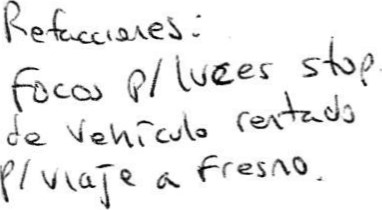 Refacciones:
focos p/luces stop.
de vehículo rentado
p/viaje a Fresno.